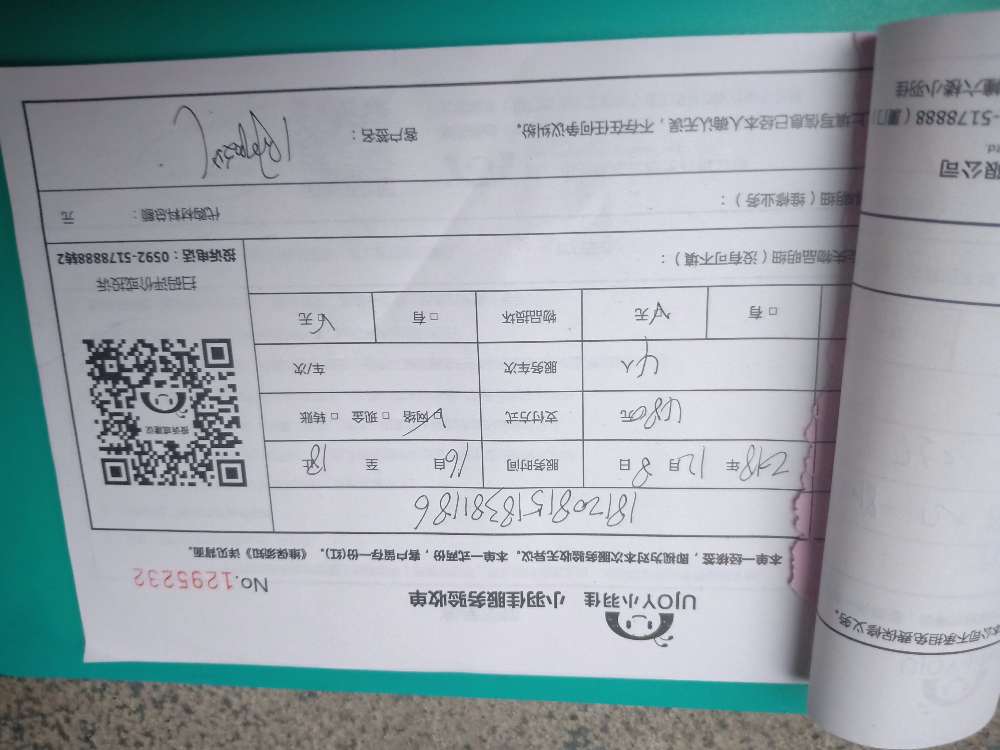 UJOY小羽佳 小羽佳服务验收单
No.1295232
本单一经签签，即视为对本次服务验收无异议。本单一式两份，客户留存一份(红)。《维保须知》详见背面。
181208151838381186
2018年 12月 8日 服务时间 16自 至 18址
480元 支付方式 ☑网络 □现金 □转账
4人 服务车次 车/次
□有 ☑无 物品损坏 □有 ☑无
投诉或建议
扫码评价或投诉
投诉电话：0592-5178888转2
失物品明细（没有可不填）：
明细（维修业务）：
代购材料总额： 元
填写信息已经本人确认无误，不存在任何争议纠纷。 客户签名：
本公司不承担免费保修义务。
限公司
-5178888（厦门
幢六楼小羽佳